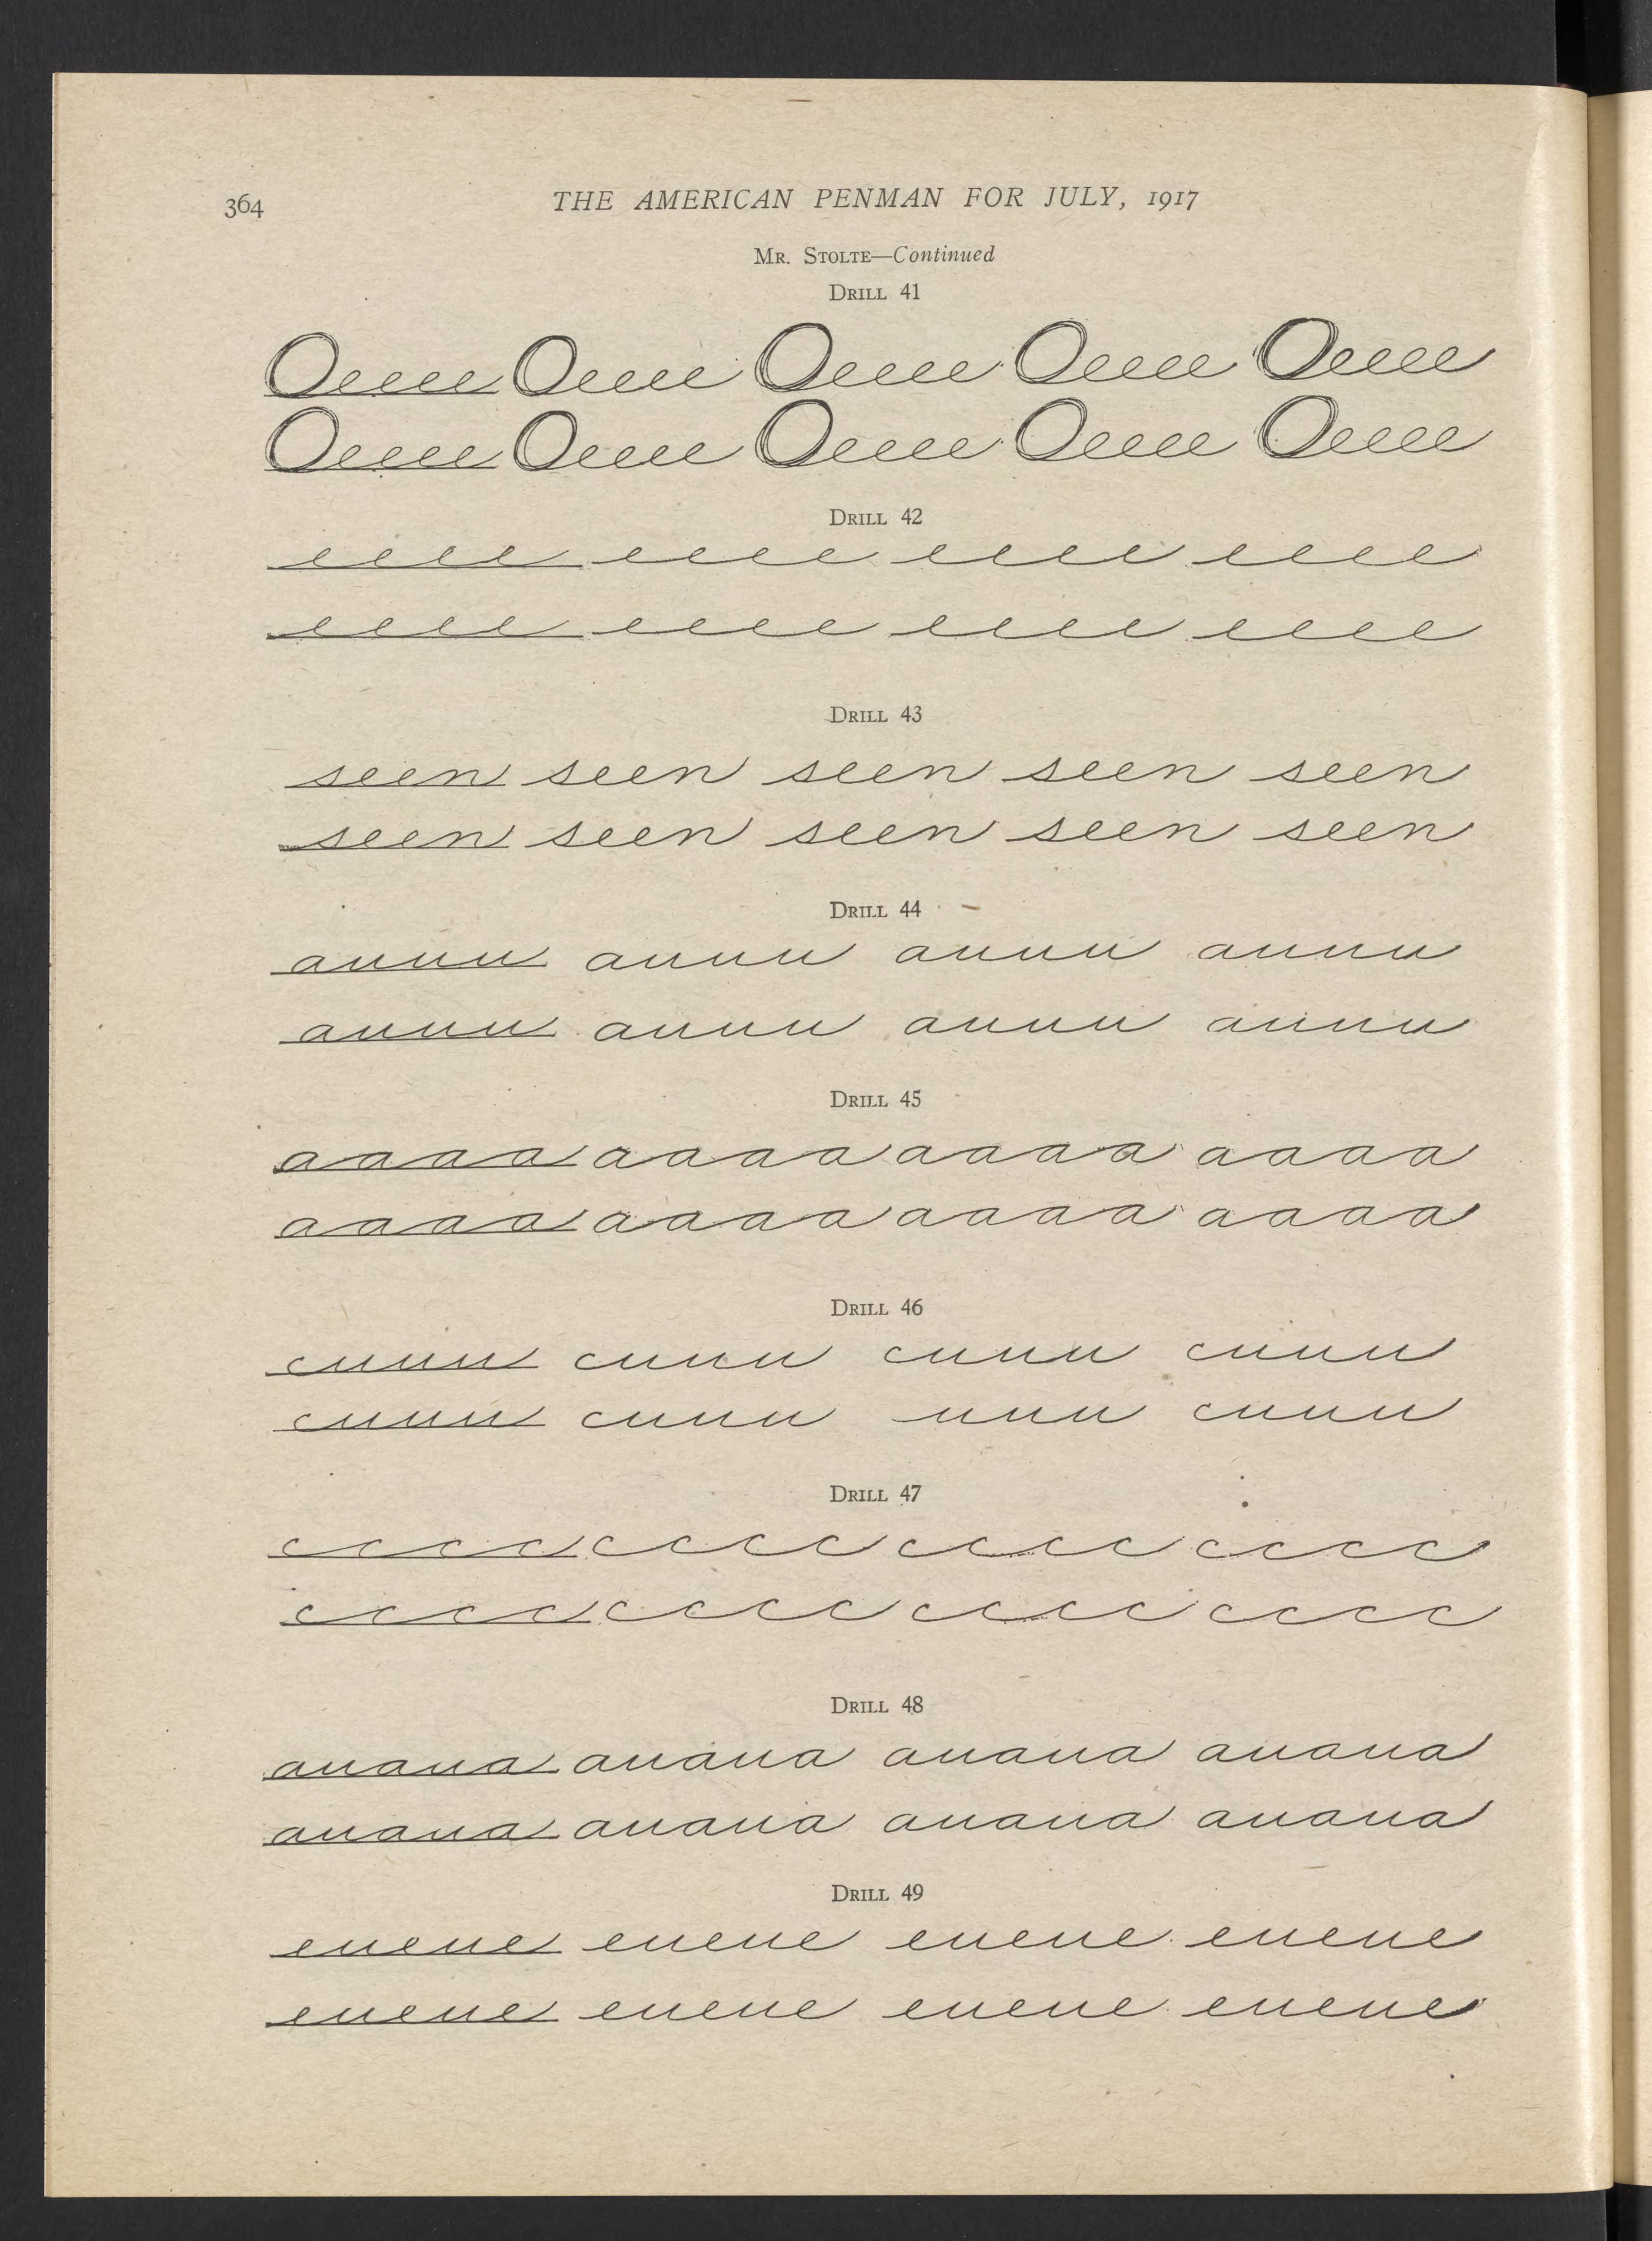 364 THE AMERICAN PENMAN FOR JULY, 1917
MR. STOLTE—Continued
DRILL 41
Oeeee Oeeee Oeeee Oeeee Oeeee
Oeeee Oeeee Oeeee Oeeee Oeeee
DRILL 42
eeee eeee eeee eeee
eeee eeee eeee eeee
DRILL 43
seen seen seen seen seen
seen seen seen seen seen
DRILL 44
auuu auuu auuu auuu
auuu auuu auuu auuu
DRILL 45
aaaa aaaa aaaa aaaa
aaaa aaaa aaaa aaaa
DRILL 46
cuuu cuuu cuuu cuuu
cuuu cuuu uuu cuuu
DRILL 47
cccc cccc cccc cccc
cccc cccc cccc cccc
DRILL 48
auaua auaua auaua auaua
auaua auaua auaua auaua
DRILL 49
eueue eueue eueue eueue
eueue eueue eueue eueue